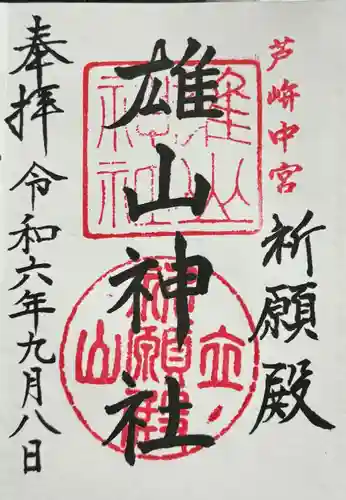 芦峅中宮
祈願殿
雄山神社
奉拝 令和六年九月八日
雄山神社
立山祈願殿